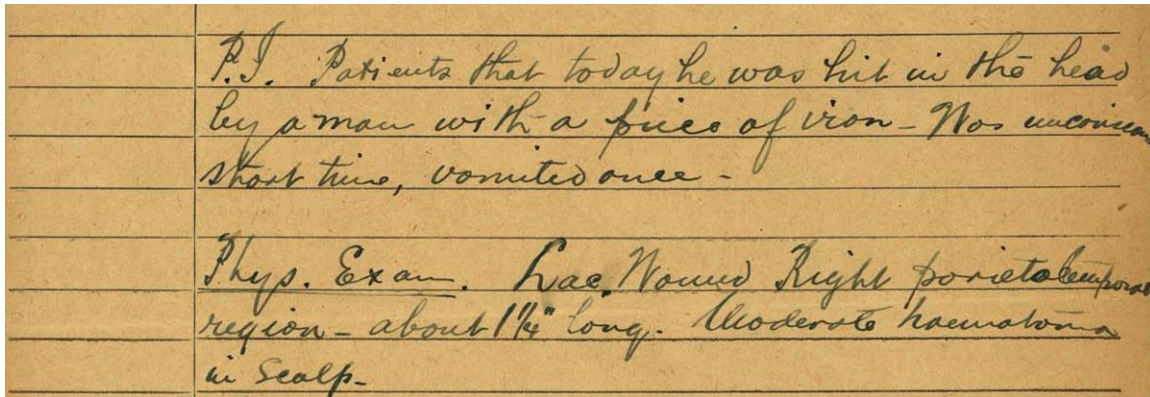 P.I. Patients that today he was hit in the head
by a man with a piece of iron - Was unconscious
short time, vomited once -
Phys. Exam. Lac. Wound Right parietotemporal
region - about 1 1/4" long. Moderate haematoma
in Scalp -